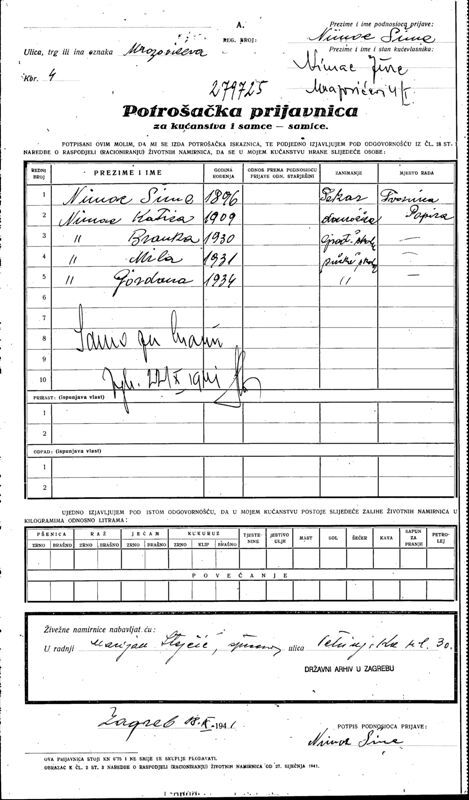 A.
REG. BROJ:
Prezime i ime podnosioca prijave:
Nimac Šime
Ulica, trg ili ina oznaka Mrazovićeva
Prezime i ime i stan kućevlasnika:
Kbr. 4
Nimac Jure
279725
Potrošačka prijavnica
za kućanstva i samce — samice.
POTPISANI OVIM MOLIM, DA MI SE IZDA POTROŠAČKA ISKAZNICA, TE PODJEDNO IZJAVLJUJEM POD ODGOVORNOŠĆU IZ ČL. 18 ST.
NAREDBE O RASPODJELI (RACIONIRANJU) ŽIVOTNIH NAMIRNICA, DA SE U MOJEM KUĆANSTVU HRANE SLIJEDEĆE OSOBE:
REDNI BROJ PREZIME I IME GODINA ROĐENJA ODNOS PREMA PODNOSIOCU PRIJAVE ODN. STARJEŠINI ZANIMANJE MJESTO RADA
1 Nimac Šime 1896 Tvornica
2 Nimac Katica 1909 domaćica Papira
3 " Branka 1930 —
4 " Mila 1931 —
5 " Gordana 1934 " —
6
7
8
9
10
PRIRAST: (ispunjava vlast)
1
2
OTPAD: (ispunjava vlast)
1
2
UJEDNO IZJAVLJUJEM POD ISTOM ODGOVORNOŠĆU, DA U MOJEM KUĆANSTVU POSTOJE SLIJEDEĆE ZALIHE ŽIVOTNIH NAMIRNICA U
KILOGRAMIMA ODNOSNO LITRAMA:
PŠENICA RAŽ JEČAM KUKURUZ TJESTENINE JESTIVO ULJE MAST SOL ŠEĆER KAVA SAPUN ZA PRANJE PETROLEJ
ZRNO BRAŠNO ZRNO BRAŠNO ZRNO BRAŠNO ZRNO KLIP BRAŠNO
POVEĆANJE
Živežne namirnice nabavljat ću:
U radnji Marijan ulica 30.
DRŽAVNI ARHIV U ZAGREBU
Zagreb 1941
POTPIS PODNOSIOCA PRIJAVE:
Nimac Šime
OVA PRIJAVNICA STOJI KN 0'75 I NE SMIJE SE SKUPLJE PLOĆAVATI.
OBRAZAC K ČL. 2 ST. 2 NAREDBE O RASPODJELI (RACIONIRANJU) ŽIVOTNIH NAMIRNICA OD 27. SIJEČNJA 1941.